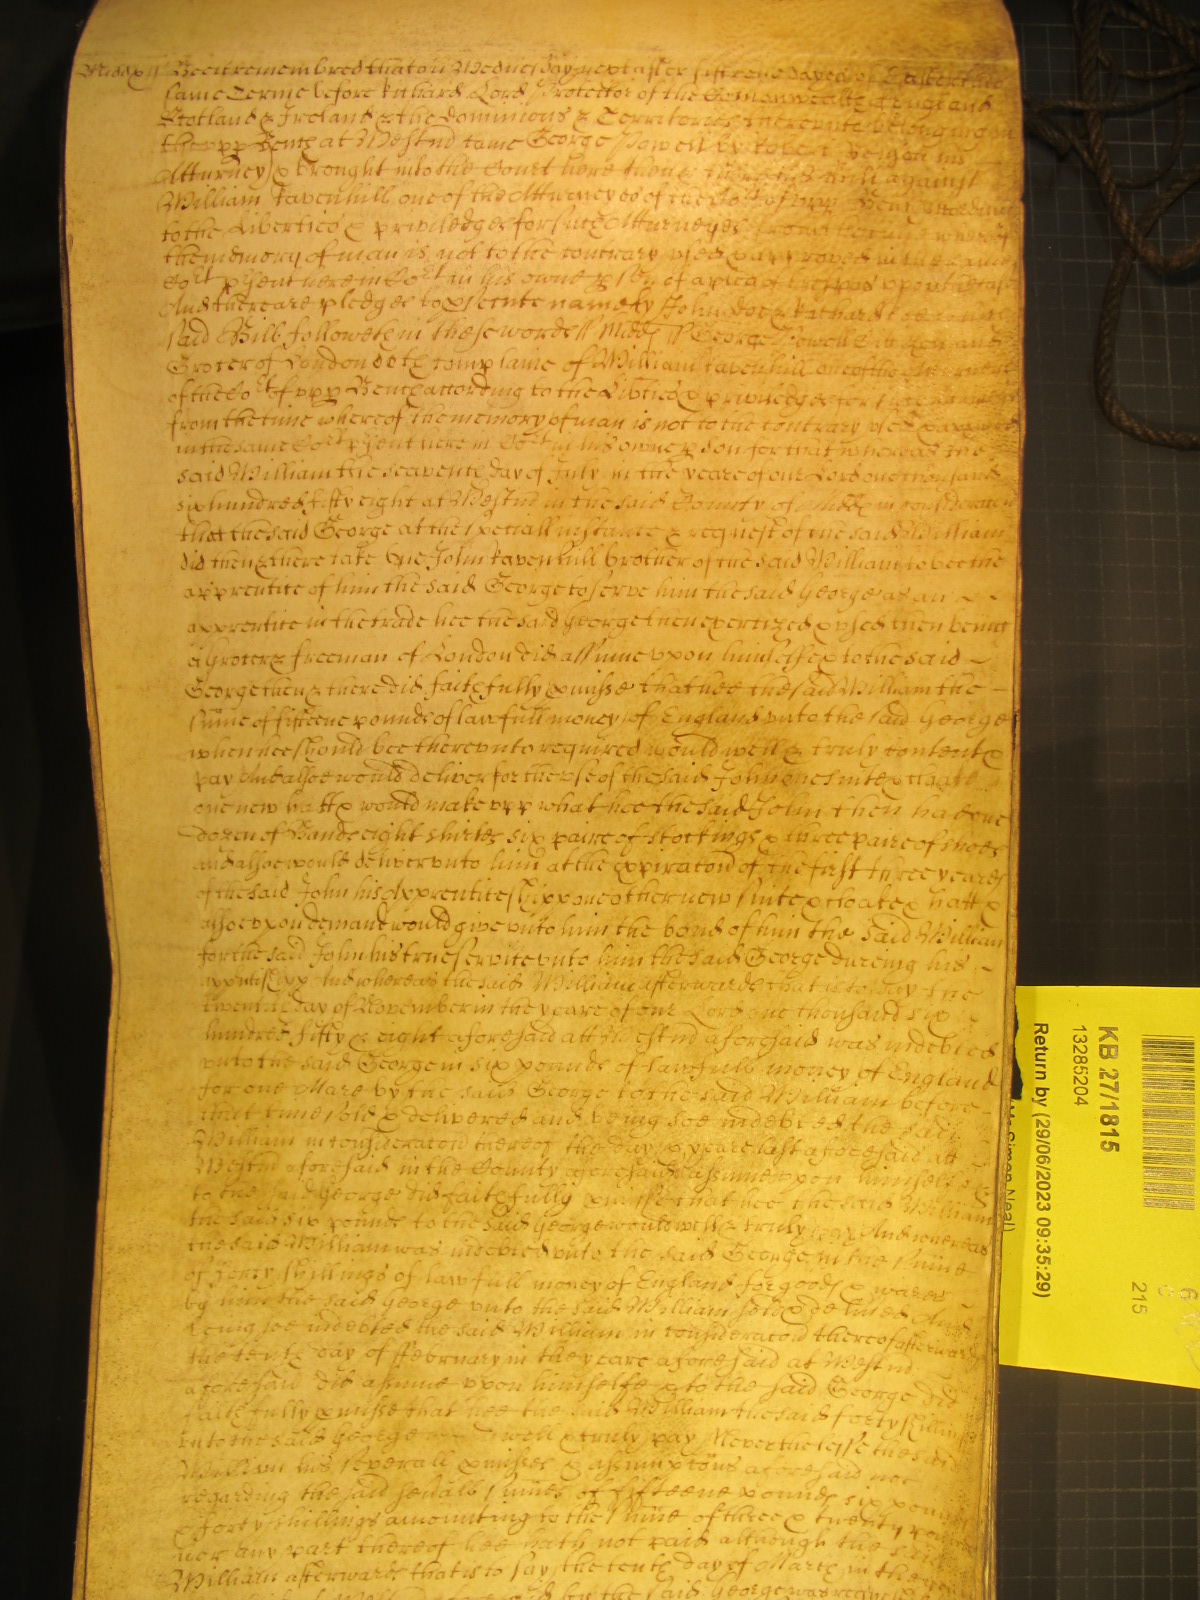 Midd ss Bee it remembred that on Wednesday next after fifteene dayes of Easter this
same Terme before Richard Lord Protector of the Comonwealth of England
Scotland & Ireland & the dominions & Territories thereunto belonging in
the upp Bench at Westm̄ came George Powell by Robert his
Atturney & brought into the Court here then there his Bill against
William Ravenhill one of the Attorneyes of the Cort of upp Bench according
to the Liberties & priviledges for such Attorneyes from the time whereof
the memory of man is not to the contrary used & approved in the same
Cort psent here in Cort in his owne pson of a plea of trespas upon the case
And there are pledges to psecute namely John Doe & Richard Roe which
said Bill followeth in these words ss Midd ss George Powell Citizen and
Grocer of London doth complaine of William Ravenhill one of the Attorneyes
of the Cort of upp Bench according to the Liberties & priviledges for such Attorneyes
from the time whereof the memory of man is not to the contrary used & approved
in the same Cort psent here in Cort in his owne pson for that whereas the
said William the seaventh day of July in the yeare of our Lord one thousand
six hundred fifty eight at Westm̄ in the said County of Midd in consideracon
that the said George at the speciall instance & request of the said William
did then & there take one John Ravenhill brother of the said William to bee the
apprentice of him the said George to serve him the said George as an
apprentice in the trade hee the said George then exercized & used then being
a Grocer & freeman of London did assume upon himselfe & to the said
George then & there did faithfully pmisse that hee the said William the
sume of fifteene pounds of lawfull money of England unto the said George
when hee should bee thereunto required would well & truly content &
pay And alsoe would deliver for the use of the said John one suite & cloake
one new hatt & would make upp what hee the said John then had one
dozen of Bands eight shirtes six paire of stockings & three paire of shoes
and alsoe would deliver unto him at the expiracon of the first three yeares
of the said John his Apprentiseshipp one other new suite & cloake & hatt &
alsoe upon demand would give unto him the bond of him the said William
for the said John his true service unto him the said George dureing his
apprentiseshipp And whereas the said William afterwards that is to say the
twentith day of November in the yeare of our Lord one thousand six
hundred fifty & eight aforesaid att Westm̄ aforesaid was indebted
unto the said George in six pounds of lawfull money of England
for one Mare by the said George to the said William before
that time sold & delivered and being soe indebted the said
William in consideracon thereof the day & yeare last aforesaid att
Westm̄ aforesaid in the County aforesaid assumed upon himselfe &
to the said George did faithfully pmisse that hee the said William
the said six pounds to the said George would well & truly pay And whereas
the said William was indebted unto the said George in the sume
of forty shillings of lawfull money of England for goods & wares
by him the said George unto the said William sold & delivered And
being soe indebted the said William in consideracon thereof afterwards
the tenth day of February in the yeare aforesaid at Westm̄
aforesaid did assume upon himselfe & to the said George did
faithfully pmisse that hee the said William the said forty shillings
unto the said George well & truly pay Neverthelesse the said
William his severall pmisses & assumptons aforesaid not
regarding the said severall sumes of fifteene pounds six pounds
& forty shillings amounting to the sume of three & twenty pounds
nor any part thereof hee hath not paid although the said
William afterwards that is to say the tenth day of March in the
by the said George was
KB 27/1815
13285204
Return by (29/06/2023 09:35:29)
Mr Simon Neal)
215